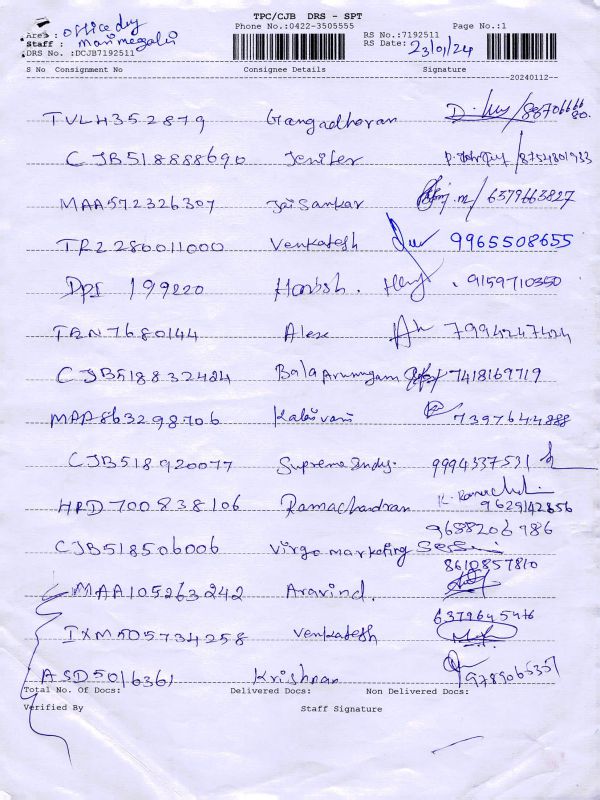 TPC/CJB DRS - SPT
Phone No.:0422-3505555
RS No.:7192511 Page No.:1
Area : office dly
Staff : Manimegalai
RS Date: 23/01/24
DRS No. :DCJB7192511
S No Consignment No Consignee Details Signature
20240112--
TVLH352879 Gangadharan 88706666 80.
CJB518888690 Jenifer 8754801933
MAA572326307 Jai Sankar 6379663827
TRZ280011000 Venkatesh 9965508655
199220 Harish. 9159710350
7680144 Alex 7994247424
CJB518832484 Bala Arumugam 7418169719
MAA863298706 Kalaivani 7397644888
CJB518920077 Supreme Indy. 9994337531
HRD700838106 Ramachandran 9629142856
9688206986
CJB518506006 Virgo Marketing
8610857810
MAA105263242 Aravind.
6379645446
IXM505734258 Venkatesh
ASD5016361 Krishnan 9789065351
Total No. Of Docs: Delivered Docs: Non Delivered Docs:
Verified By Staff Signature